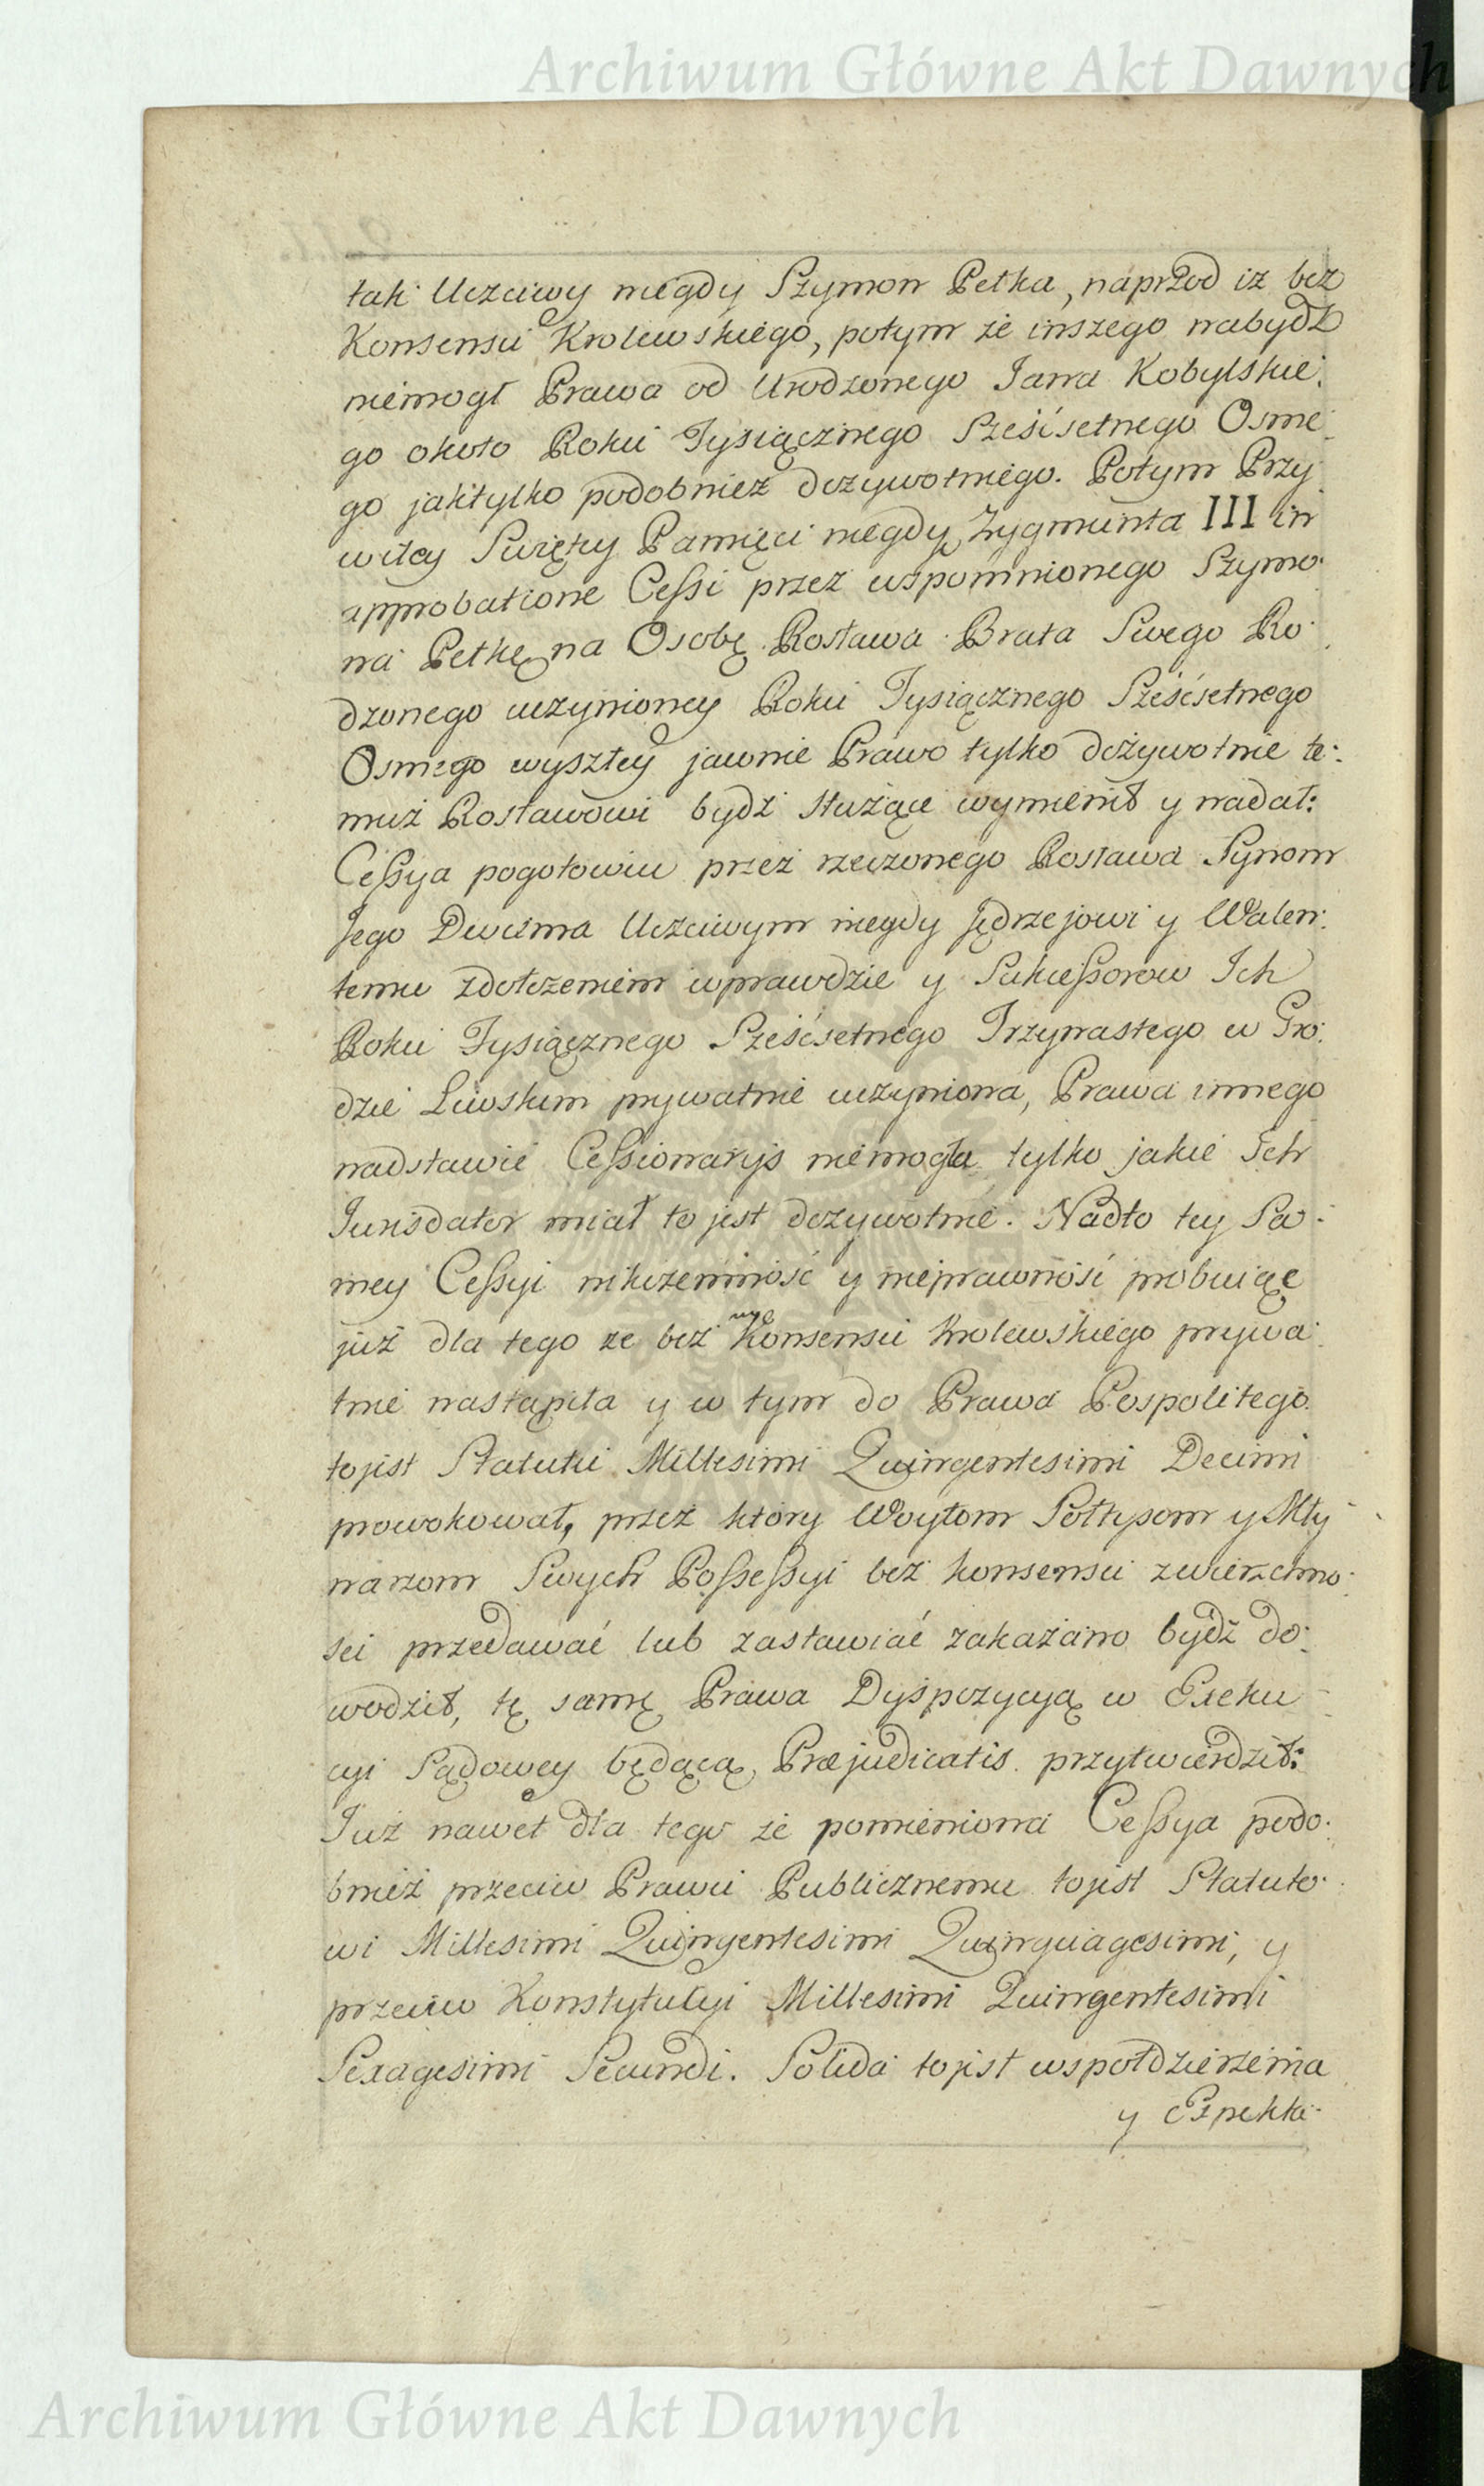 Archiwum Główne Akt Dawnych
tak Uczciwy niegdy Szymon Petka, naprzod iz bez
Konsensu Krolewskiego, potym że inszego nabydź
niemogł Prawa od Urodzonego Jana Kobylskie:
go około Roku Tysiącznego Sześćsetnego Osme:
go jaktylko podobnież dożywotniego. Potym Przy
wiley Swiętey Pamięci niegdy Zygmunta III in
approbatione Cessi przez wspomnionego Szymo:
na Petkę na Osobę Rosława Brata Swego Ro:
dzonego uczynioney Roku Tysiącznego Sześćsetnego
Osmego wyszłey jawnie Prawo tylko dożywotnie te:
muż Rosławowi bydź służące wymienił y nadał:
Cessya pogotowiu przez rzeczonego Rosława Synom
Jego Dwuma Uczciwym niegdy Jędrzejowi y Walen:
temu zdołożeniem wprawdzie y Sukcessorow Ich
Roku Tysiącznego Sześćsetnego Trzynastego w Gro:
dzie Liwskim prywatnie uczyniona, Prawa innego
nadstawić Cessionaryis niemogła tylko jakie Ich
Jurisdator miał to jest dożywotnie. Nadto tey Sa:
mey Cessyi nikczemność y nieprawność probuiąc
już dla tego że bez Konsensu Krolewskiego prywa:
tnie nastąpiła y w tym do Prawa Pospolitego
tojest Statutu Millesimi Quingentesimi Decimi
prowokował, przez który Woytom Sołtysom y Mły
narzom Swych Possessyi bez konsensu zwierzchno:
sci przedawać lub zastawiać zakazano bydź do:
wodził, tę samę Prawa Dyspozycyą w Exeku
cyi Sądowey będącą Præjudicatis przytwierdził:
Już nawet dla tego że pomieniona Cessya podo:
bnież przeciw Prawu Publicznemu tojest Statuto:
wi Millesimi Quingentesimi Quinquagesimi, y
przeciw Konstytucyi Millesimi Quingentesimi
Sexagesimi Secundi. Solida tojest wspołdzierżenia
y Expekta:
Archiwum Główne Akt Dawnych